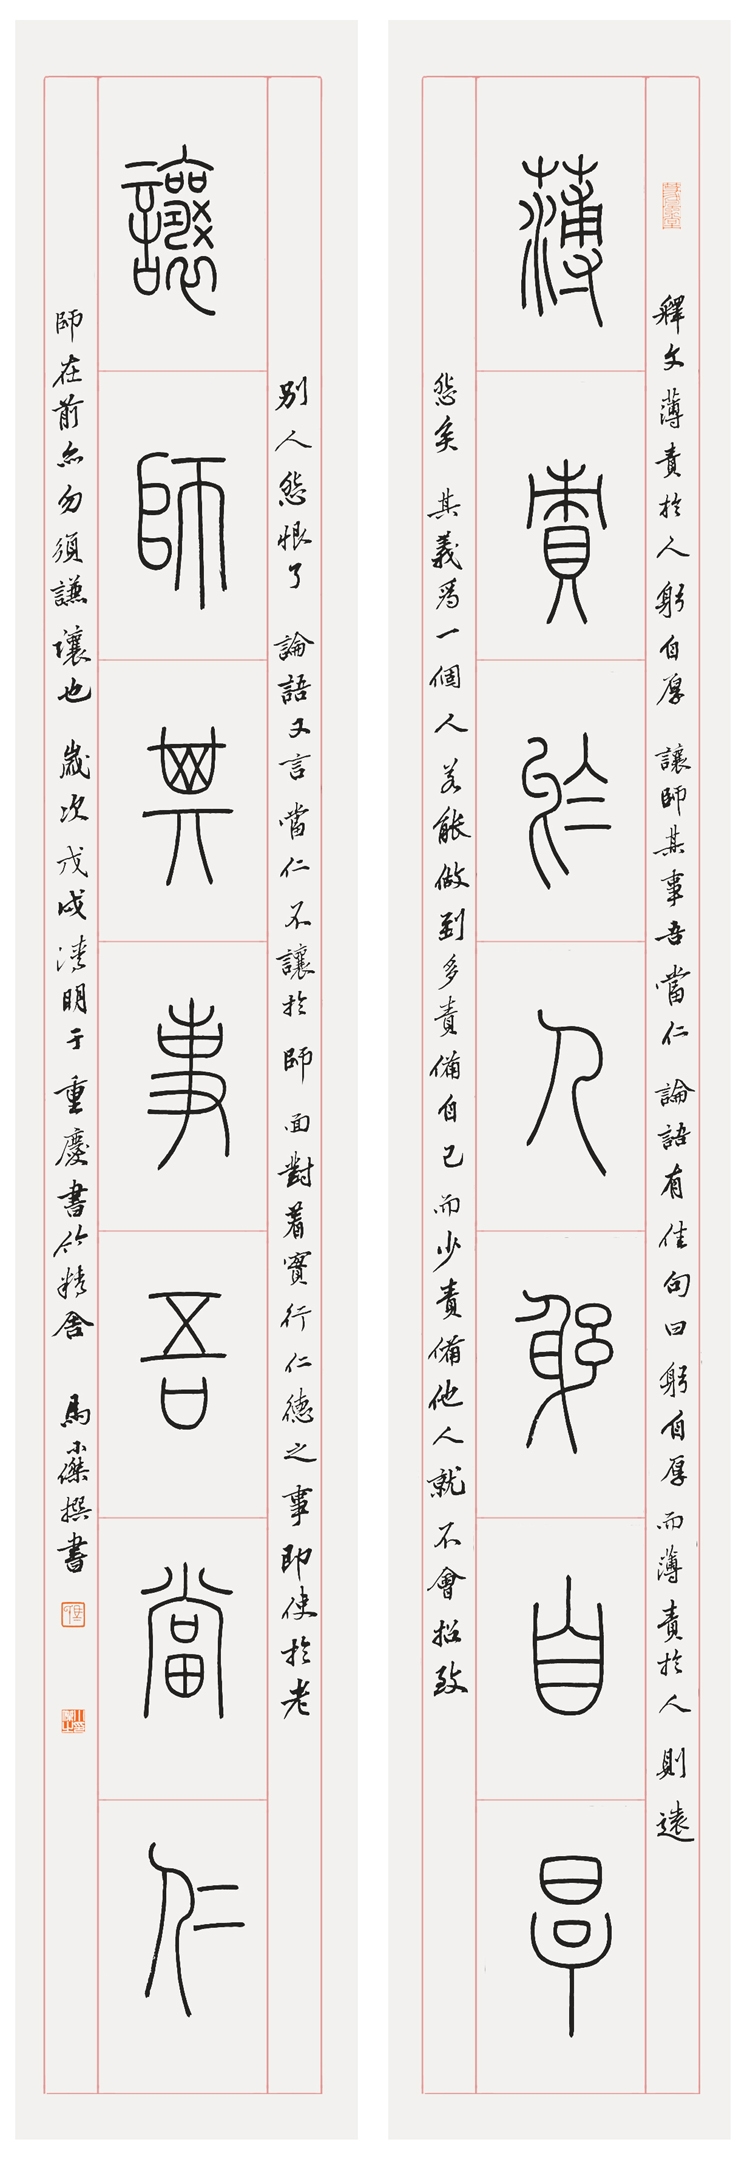 薄責於人躬自厚
釋文薄責於人躬自厚 讓師其事吾當仁 論語有佳句曰躬自厚而薄責於人則遠
怨矣 其義爲一個人若能做到多責備自己而少責備他人就不會招致
讓師其事吾當仁
別人怨恨了 論語又言當仁不讓於師 面對着實行仁德之事即使於老
師在前亦勿須謙讓也 歲次戊戌清明于重慶書竹精舍 馬小傑撰書